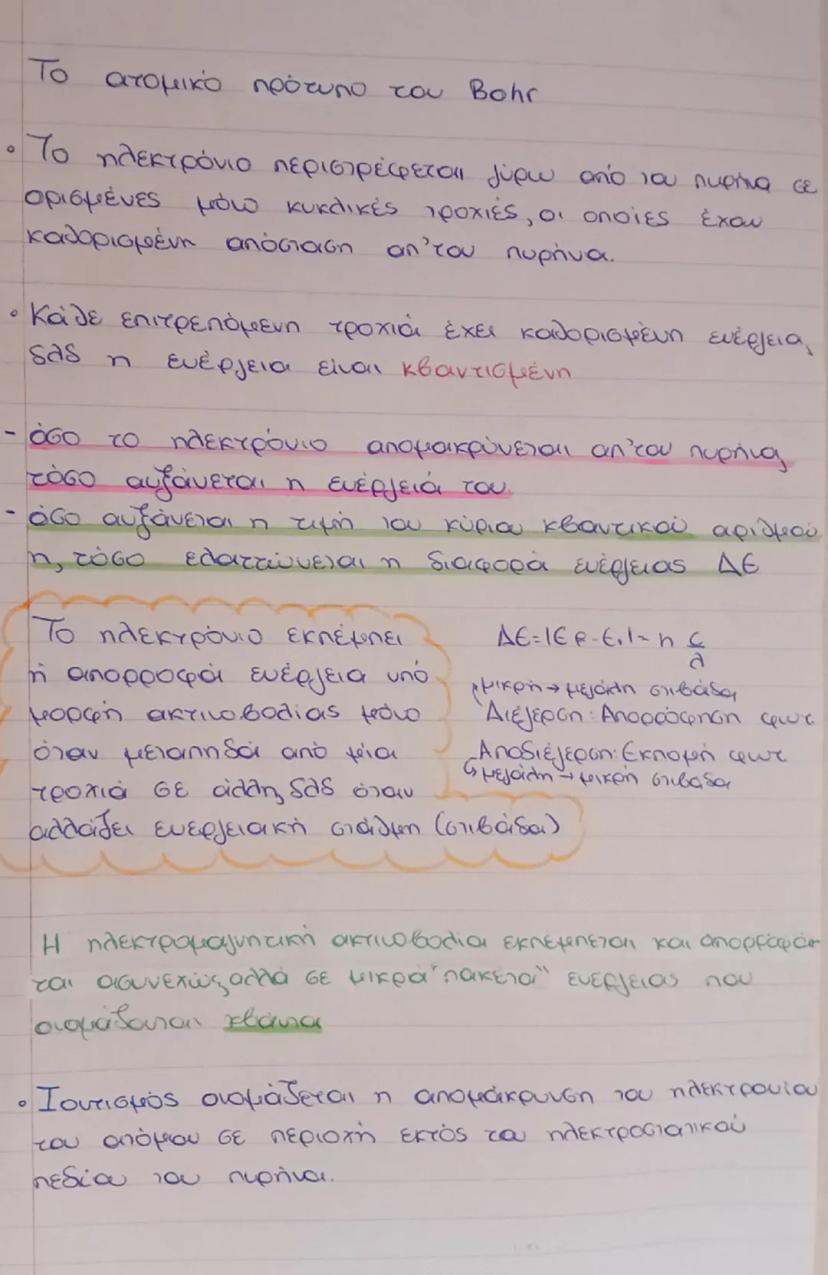 Το ατομικό πρότυπο του Bohr
• Το ηλεκτρόνιο περιστρέφεται γύρω από τον πυρήνα σε
ορισμένες μόνο κυκλικές τροχιές, οι οποίες έχουν
καθορισμένη απόσταση απ'τον πυρήνα.
• Κάθε επιτρεπόμενη τροχιά έχει καθορισμένη ενέργεια,
δλδ η ενέργεια είναι κβαντισμένη
- όσο το ηλεκτρόνιο απομακρύνεται απ'τον πυρήνα,
τόσο αυξάνεται η ενέργειά του.
- όσο αυξάνεται η τιμή του κύριου κβαντικού αριθμού
n, τόσο ελαττώνεται η διαφορά ενέργειας ΔΕ
Το ηλεκτρόνιο εκπέμπει
ή απορροφά ενέργεια υπό
μορφή ακτινοβολίας μόνο
όταν μεταπηδά από μία
τροχιά σε άλλη, δλδ όταν
αλλάζει ενεργειακή στάθμη (στιβάδα)
ΔΕ=|Ef-Ei|= h c/λ
μικρή → μεγάλη στιβάδα
Διέγερση: Απορρόφηση φως
Αποδιέγερση: Εκπομπή φως
↳ μεγάλη → μικρή στιβάδα
Η ηλεκτρομαγνητική ακτινοβολία εκπέμπεται και απορροφά-
ται ασυνεχώς, αλλά σε μικρά "πακέτα" ενέργειας που
ονομάζονται κβάντα
• Ιοντισμός ονομάζεται η απομάκρυνση του ηλεκτρονίου
του ατόμου σε περιοχή εκτός του ηλεκτροστατικού
πεδίου του πυρήνα.